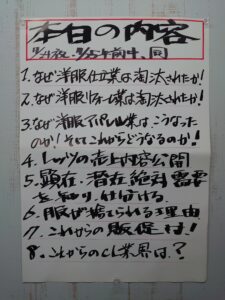 本日の内容
11/24夜、11/25午前、同
1.なぜ洋服仕立業は淘汰されたか!
2.なぜ洋服リフォーム業は淘汰されたか!
3.なぜ洋服アパレル業はこうなった
のか!そしてこれからどうなるのか!
4.レッツの売上内容公開
5.顕在、潜在、絶対需要
を知り、仕掛ける
6.服が捨てられる理由
7.これからの販促は!
8.これからのCL業界は?